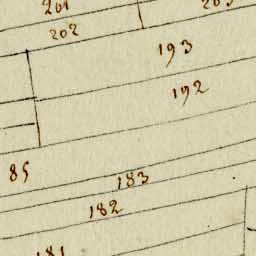 201
203
202
193
192
85
183
182
181